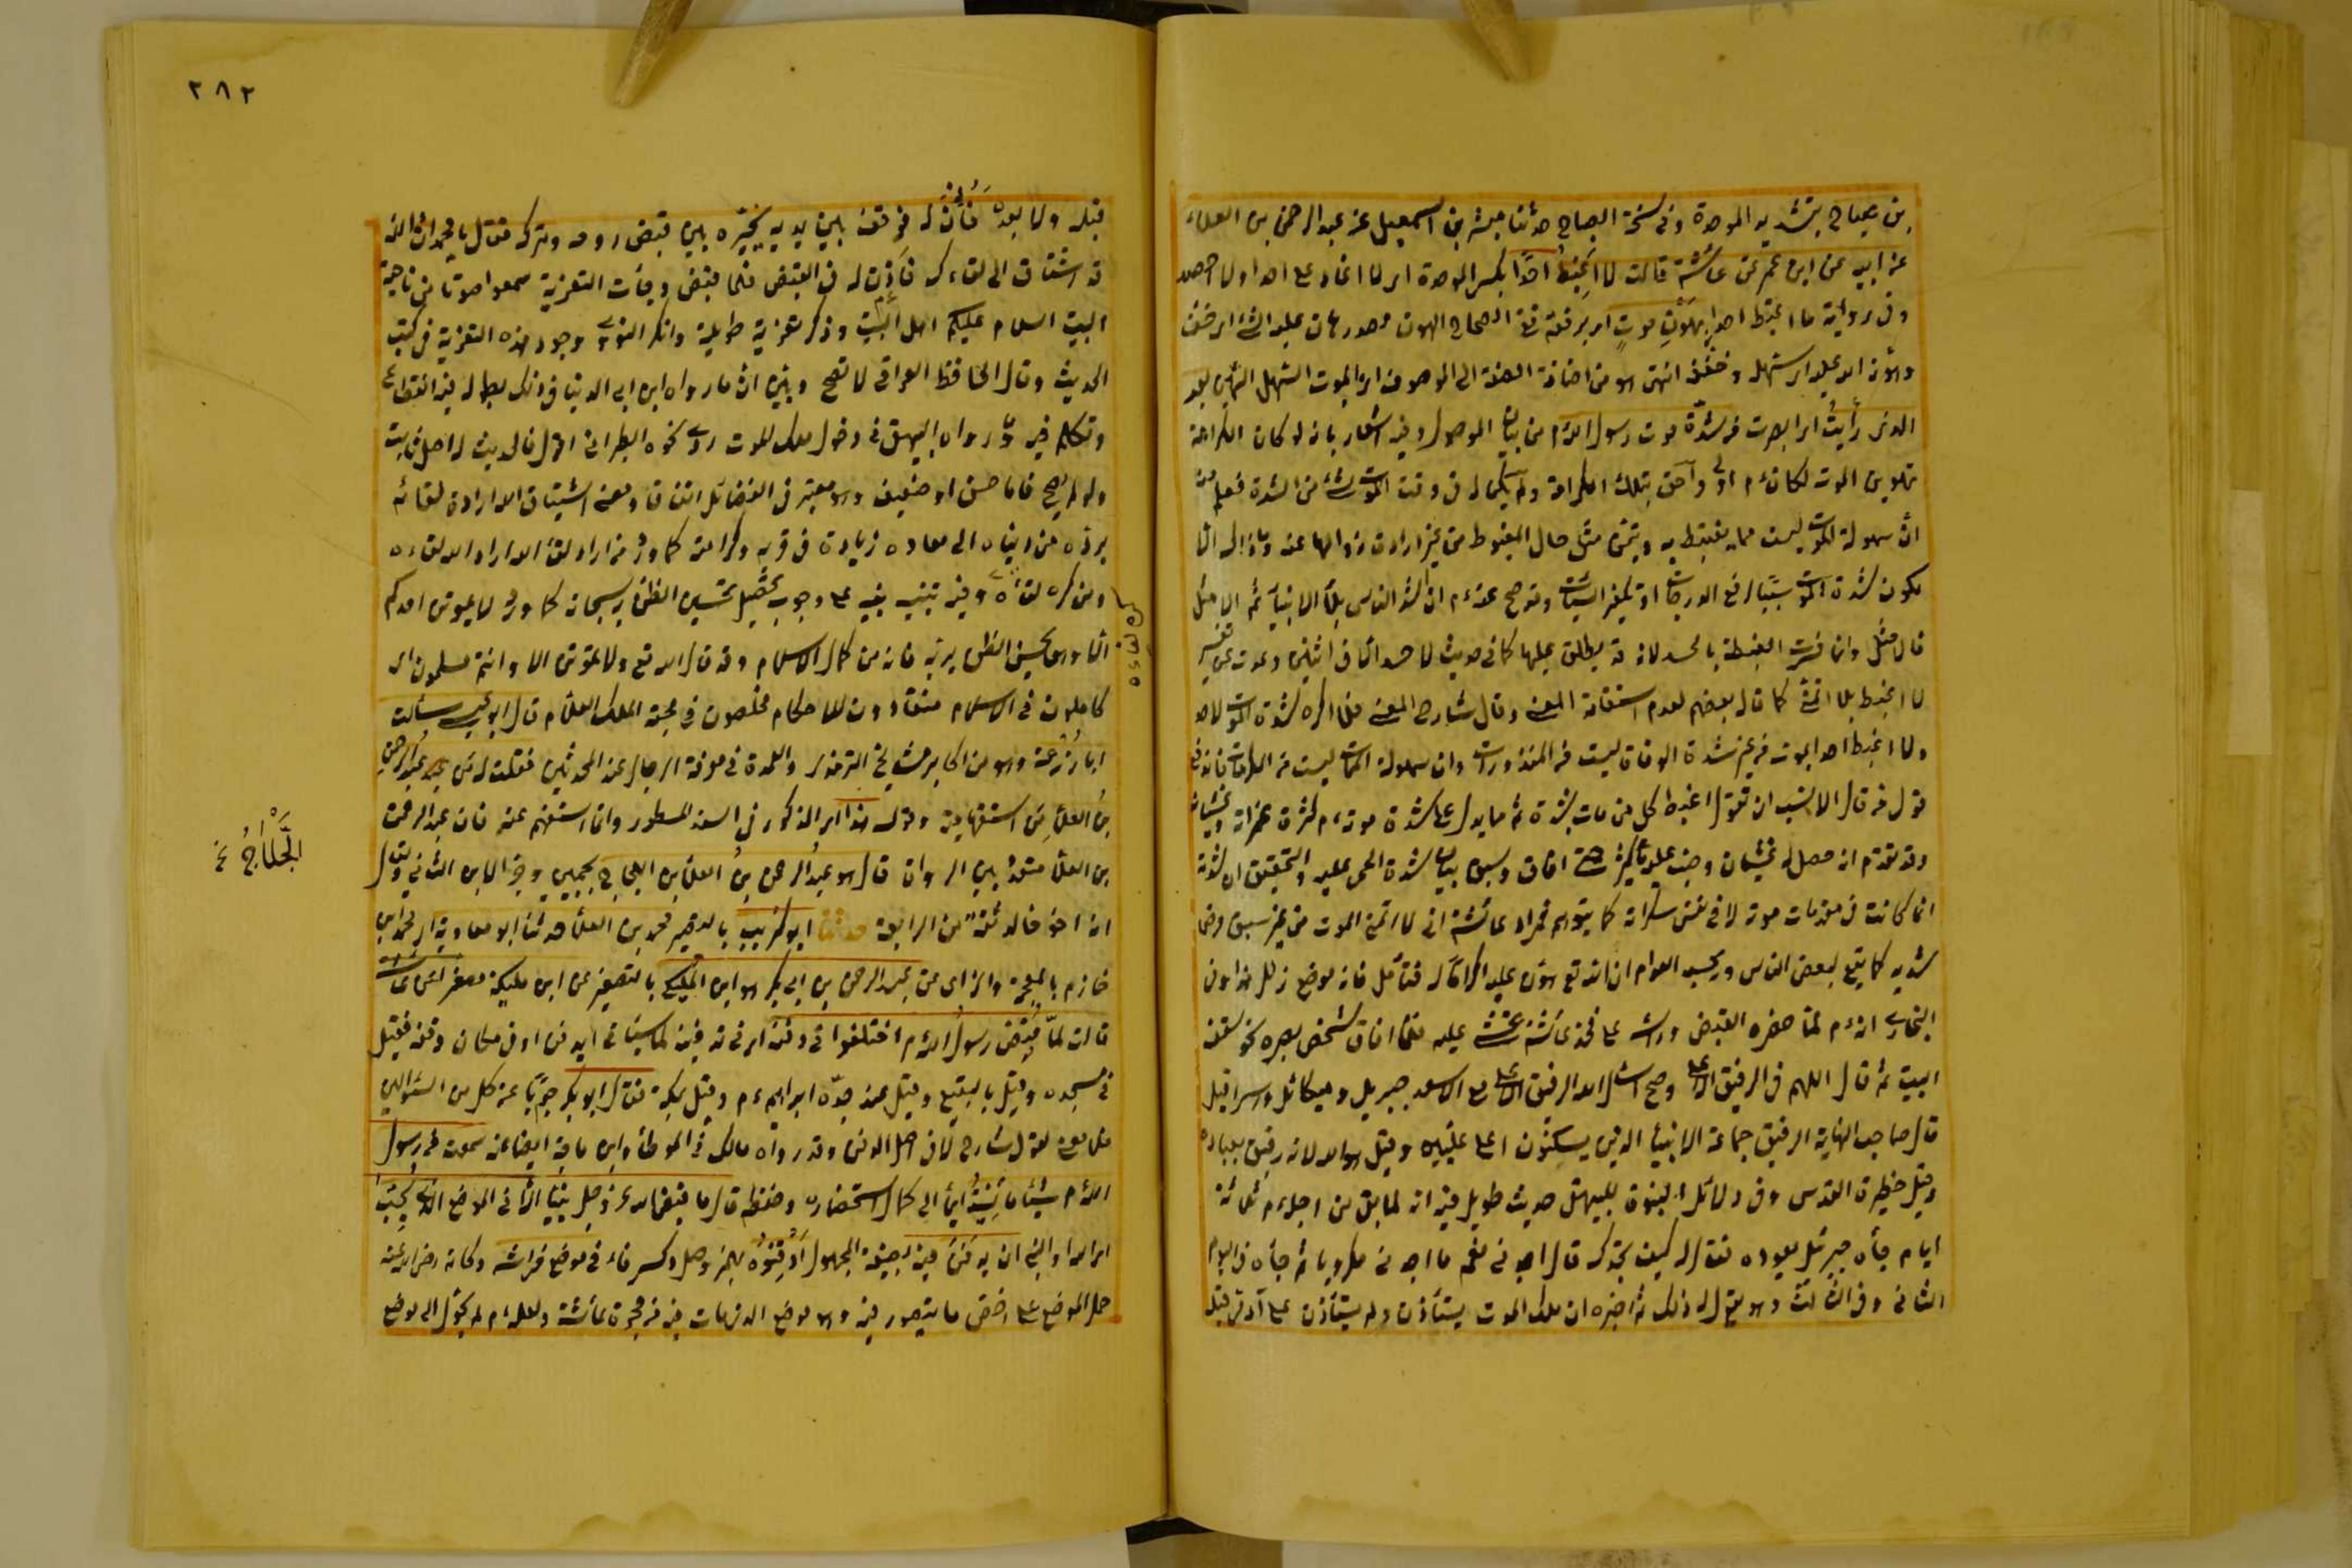 بن صباح بتشديد الموحدة وفي نسخة الصباح حدثنا مبشر بن اسمعيل عن عبد الرحمن بن العلاء
عن ابيه عن ابن عمر عن عائشة قالت لا اغبط احدا بكسر الموحدة اي لا اغار على احد ولا احسد
وفي رواية ما اغبط احدا بهون موت اي برفقه ففي الصحاح الهون مصدر هان عليه الشئ اي خف
وهونه الله عليه اي سهله وخففه انتهى وهو من اضافة الصفة الى الموصوف اي الموت السهل الهين بعد
الذي رأيت اي ابصرت من شدة موت رسول الله م من بيان الموصول وفيه اشعار بانه لو كان الكرامة
بتهوين الموت لكان ءم اولى واحق بتلك الكرامة ولم يكن له في وقت الموت شئ من الشدة فعلم منه
ان سهولة الموت ليست مما يغتبط به ويتمنى مثل حال المغبوط من غير ارادة زوالها عنه وما ذلك الا
لكون شدة الموت سببا لرفع الدرجات او تكفير السيئات وقد صح عنه ءم ان اشد الناس بلاء الانبياء ثم الامثل
فالامثل وانما فسرت الغبطة بالحسد لانه قد يطلق عليها كما في حديث لا حسد الا في اثنتين وعدت عن تفسير
لا اغبط بلا اتمنى كما قال بعضهم لعدم استقامة المعنى وقال شارح المعنى فلا اكره شدة الموت لاحد
ولا اغبط احدا يموت من غير شدة الوفاة ليست من المنذورات وان سهولة الموت ليست من المكرمات
قول من قال الانسب ان تقول اغبط كل من مات بشدة ثم ما يدل على شدة موته ءم كثرة غمراته وغشيانه
وقد تقدم انه حصل له غشيان وصب عليه ماء كثير حتى افاق وسبق بيان شدة الحمى عليه والتحقيق ان الشدة
انما كانت في مقدمات موته لا في نفس سكراته كما يتوهم فمراد عائشة اني لا اتمنى الموت من غير سبق مرض
شديد كما يقع لبعض الناس ويحسب العوام ان الله تع هون عليه اكراما له فتأمل فانه موضع زلل هذا وفي
البخاري انه ءم لما حضره القبض ورأسه على فخذ عائشة غشي عليه فلما افاق شخص بصره نحو سقف
البيت ثم قال اللهم في الرفيق الاعلى وصح اسأل الله الرفيق الاعلى مع الاسعد جبريل وميكائل واسرافيل
قال صاحب النهاية الرفيق جماعة الانبياء الذين يسكنون اعلى عليين وقيل هو الله لانه رفيق بعباده
وقيل حظيرة القدس وفي دلائل النبوة للبيهقي حديث طويل فيه انه لما بقي من اجله ءم ثلاثة
ايام جاءه جبرئل يعوده فقال له كيف تجدك قال اجدني مغموما اجدني مكروبا ثم جاءه في اليوم
الثاني وفي الثالث وهو يقول له ذلك ثم اخبره ان ملك الموت يستأذن ولم يستأذن على آدمي قبله
٢٨٢
قبله ولا بعده فأذن له فوقف بين يديه يخيره بين قبض روحه وتركه فقال يا محمد ان الله
قد اشتاق الى لقاءك فأذن له في القبض فلما قبض وجاءت التعزية سمعوا صوتا من ناحية
البيت السلام عليكم اهل البيت وذكر تعزية طويلة وانكر النووي وجود هذه التعزية في كتب
الحديث وقال الحافظ العراقي لا تصح وبين ان ما رواه ابن ابي الدنيا في ذلك بطوله فيه انقطاع
وتكلم فيه وما رواه البيهقي في دخول ملك الموت روى نحوه الطبراني اقول فالحديث له اصل ثابت
ولو لم يصح فاما حسن او ضعيف وهو معتبر في الفضائل اتفاقا ومعنى اشتياق الله ارادة لقائه
برده من دنياه الى معاده زيادة في قربه وكرامته كما ورد من اراد لقاء الله اراد الله لقاءه
ومن كره لقاءه وفيه تنبيه نبيه على وجوب تحصيل تحسين الظن به سبحانه كما ورد لا يموتن احدكم
كره الله لقاءه
الا وهو يحسن الظن بربه فانه من كمال الاسلام وقد قال الله تع ولا تموتن الا وانتم مسلمون اي
كاملون في الاسلام منقادون للاحكام مخلصون في محبة الملك العلام قال ابو عيسى سألت
ابا زرعة وهو من اكابر مشايخ الترمذي والعمدة في معرفة الرجال عند المحدثين فقلت له من عبد الرحمن
بن العلاء من استفهامية وقوله هذا اي المذكور في السند المسطور وانما استفهم عنه فان عبد الرحمن
بن العلاء متعدد بين الرواة قال هو عبد الرحمن بن العلاء بن اللجلاج بجيمين وجر الابن الثاني وقيل
الجلاج خ
انه اخو خالد ثقة من الرابعة حدثنا ابو كريب بالتصغير محمد بن العلاء حدثنا ابو معاوية اي محمد بن
خازم بالمعجمة والزاي عن عبد الرحمن بن ابي بكر هو ابن المليكي بالتصغير عن ابن مليكة مصغر عن عائشة
قالت لما قبض رسول الله م اختلفوا في دفنه اي في انه يدفن او في مكان دفنه فقيل
في مسجده وقيل بالبقيع وقيل عند جده ابراهيم ءم وقيل بمكة فقال ابو بكر جوابا عن كل من السؤالين
فلا معنى لقول شارح لا في اصل الدفن وقد رواه مالك في الموطأ وابن ماجة ايضا عنه سمعت من رسول
الله م شيئا ما نسيته ايماء الى كمال استحضاره وحفظه قال ما قبض الله عز وجل نبيا الا في الموضع الذي يحب
اي الله او النبي ان يدفن فيه بصيغة المجهول ادفنوه بهمز وصل وكسر فاء في موضع فراشه وكانه رضي الله عنه
حمل الموضع على اخص ما يتصور فيه وهو موضع الذي مات فيه من حجرة عائشة ولعله ءم لم يحول الى موضع